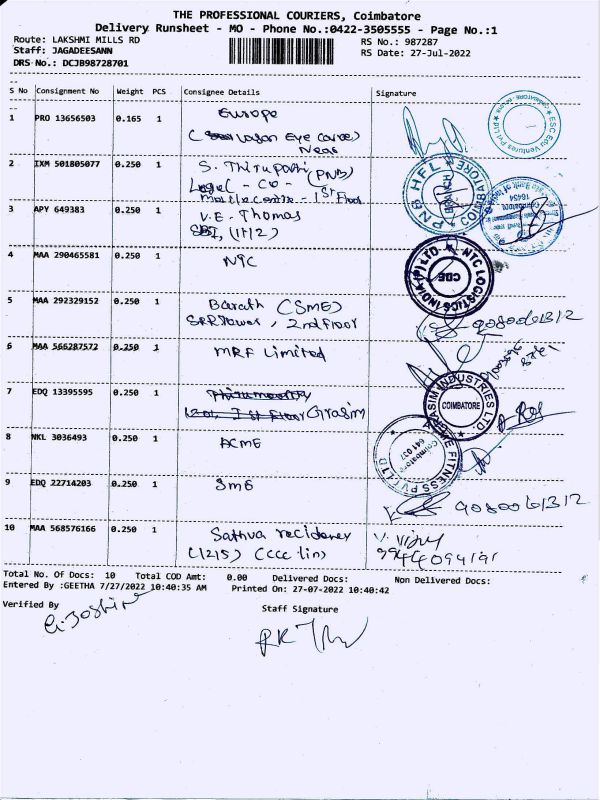 THE PROFESSIONAL COURIERS, Coimbatore
Delivery Runsheet - MO - Phone No.:0422-3505555 - Page No.:1
Route: LAKSHMI MILLS RD RS No.: 987287
Staff: JAGADEESANN RS Date: 27-Jul-2022
DRS No.: DCJB98728701
S No Consignment No Weight PCS Consignee Details Signature
1 PRO 13656503 0.165 1 Europe
Eye
Near
ESC Edu Ventures Pvt Ltd
COIMBATORE
2 IXM 501805077 0.250 1 S. Thirupathi (PNB)
Legal - CO -
1st Floor
PNB HFL
BRANCH
COIMBATORE
3 APY 649383 0.250 1 V.E. Thomas
SBI, (1F/2)
18454
4 MAA 290465581 0.250 1 NYC
NTC LOGISTICS INDIA (P) LTD
CBE
5 MAA 292329152 0.250 1 Barath (SME)
SRR Tower, 2nd Floor
9080061312
6 MAA 566287572 0.250 1 MRF Limited
7 EDQ 13395595 0.250 1 Thirumoorthy
1201, 1st Floor Grasim
GRASIM INDUSTRIES LTD.
COIMBATORE
8 NKL 3036493 0.250 1 ACME
ACME FITNESS PVT LTD
Coimbatore
641 037
9 EDQ 22714203 0.250 1 SME
9080061312
10 MAA 568576166 0.250 1 Sathva recidency
(1215) (CCC lin)
V. Vijay
9944094191
Total No. Of Docs: 10 Total COD Amt: 0.00 Delivered Docs: Non Delivered Docs:
Entered By :GEETHA 7/27/2022 10:40:35 AM Printed On: 27-07-2022 10:40:42
Verified By Staff Signature
G. Joshin